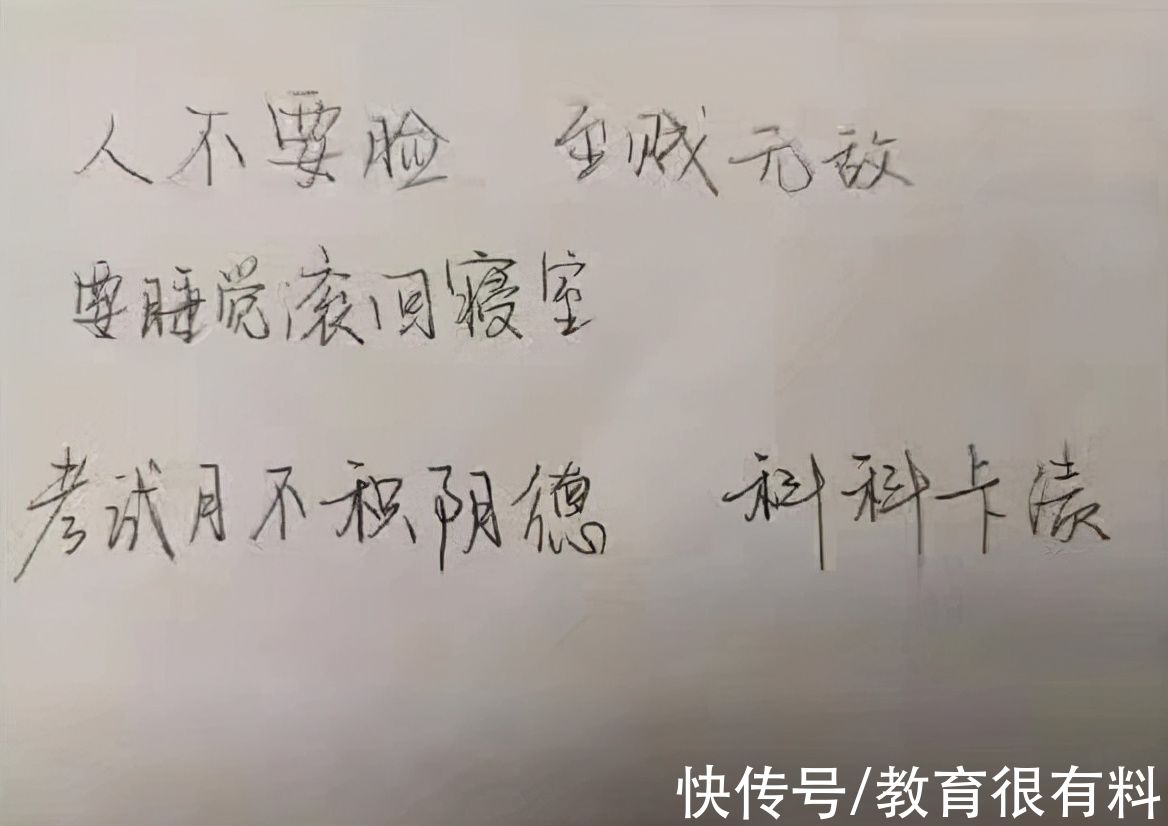 人不要脸 至贱无敌
要睡觉滚回寝室
考试月不积阴德 科科卡渍
快传号/教育很有料